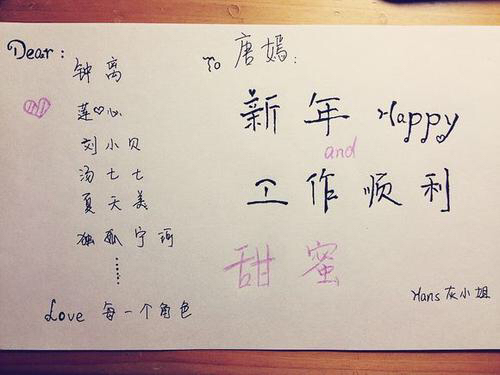 Dear:
钟离
莲心
刘小贝
汤七七
夏天美
独孤宁珂
......
Love 每一个角色
To 唐嫣:
新年 Happy
and
工作顺利
甜蜜
Hans灰小姐